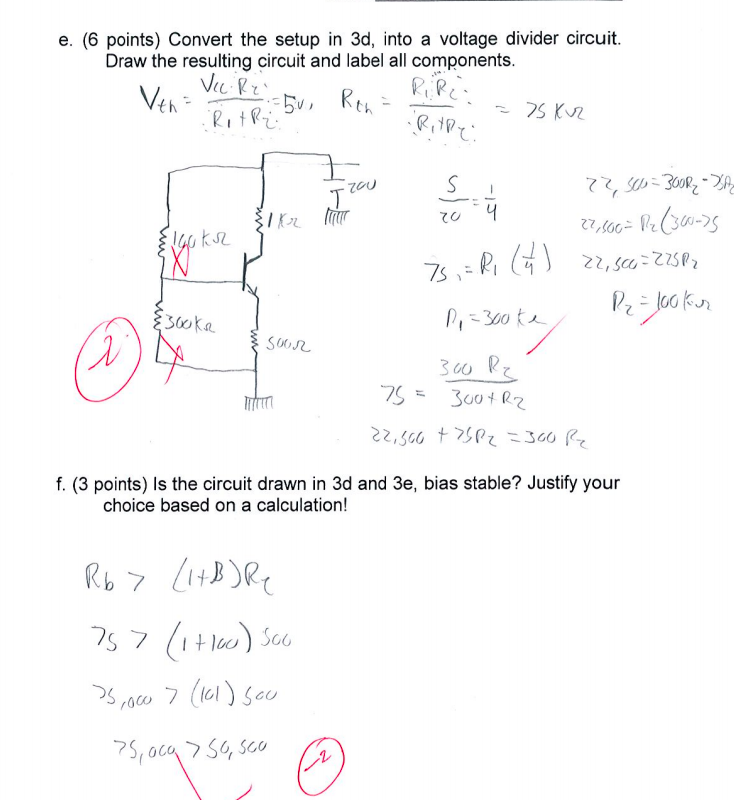 e. (6 points) Convert the setup in 3d, into a voltage divider circuit.
Draw the resulting circuit and label all components.
Vth = Vcc·R2 / R1+R2 = 5v, Rth = R1·R2 / R1+R2 = 75 KΩ
20V
1KΩ
100KΩ
300KΩ
500Ω
2
5/20 = 1/4
75 = R1 (1/4)
R1 = 300 KΩ
75 = 300 R2 / 300+R2
22,500 + 75R2 = 300 R2
22,500 = 300R2 - 75R2
22,500 = R2 (300-75
22,500 = 225R2
R2 = 100 KΩ
f. (3 points) Is the circuit drawn in 3d and 3e, bias stable? Justify your
choice based on a calculation!
Rb > (1+B)RE
75 > (1+100) 500
75,000 > (101) 500
75,000 > 50,500
-2